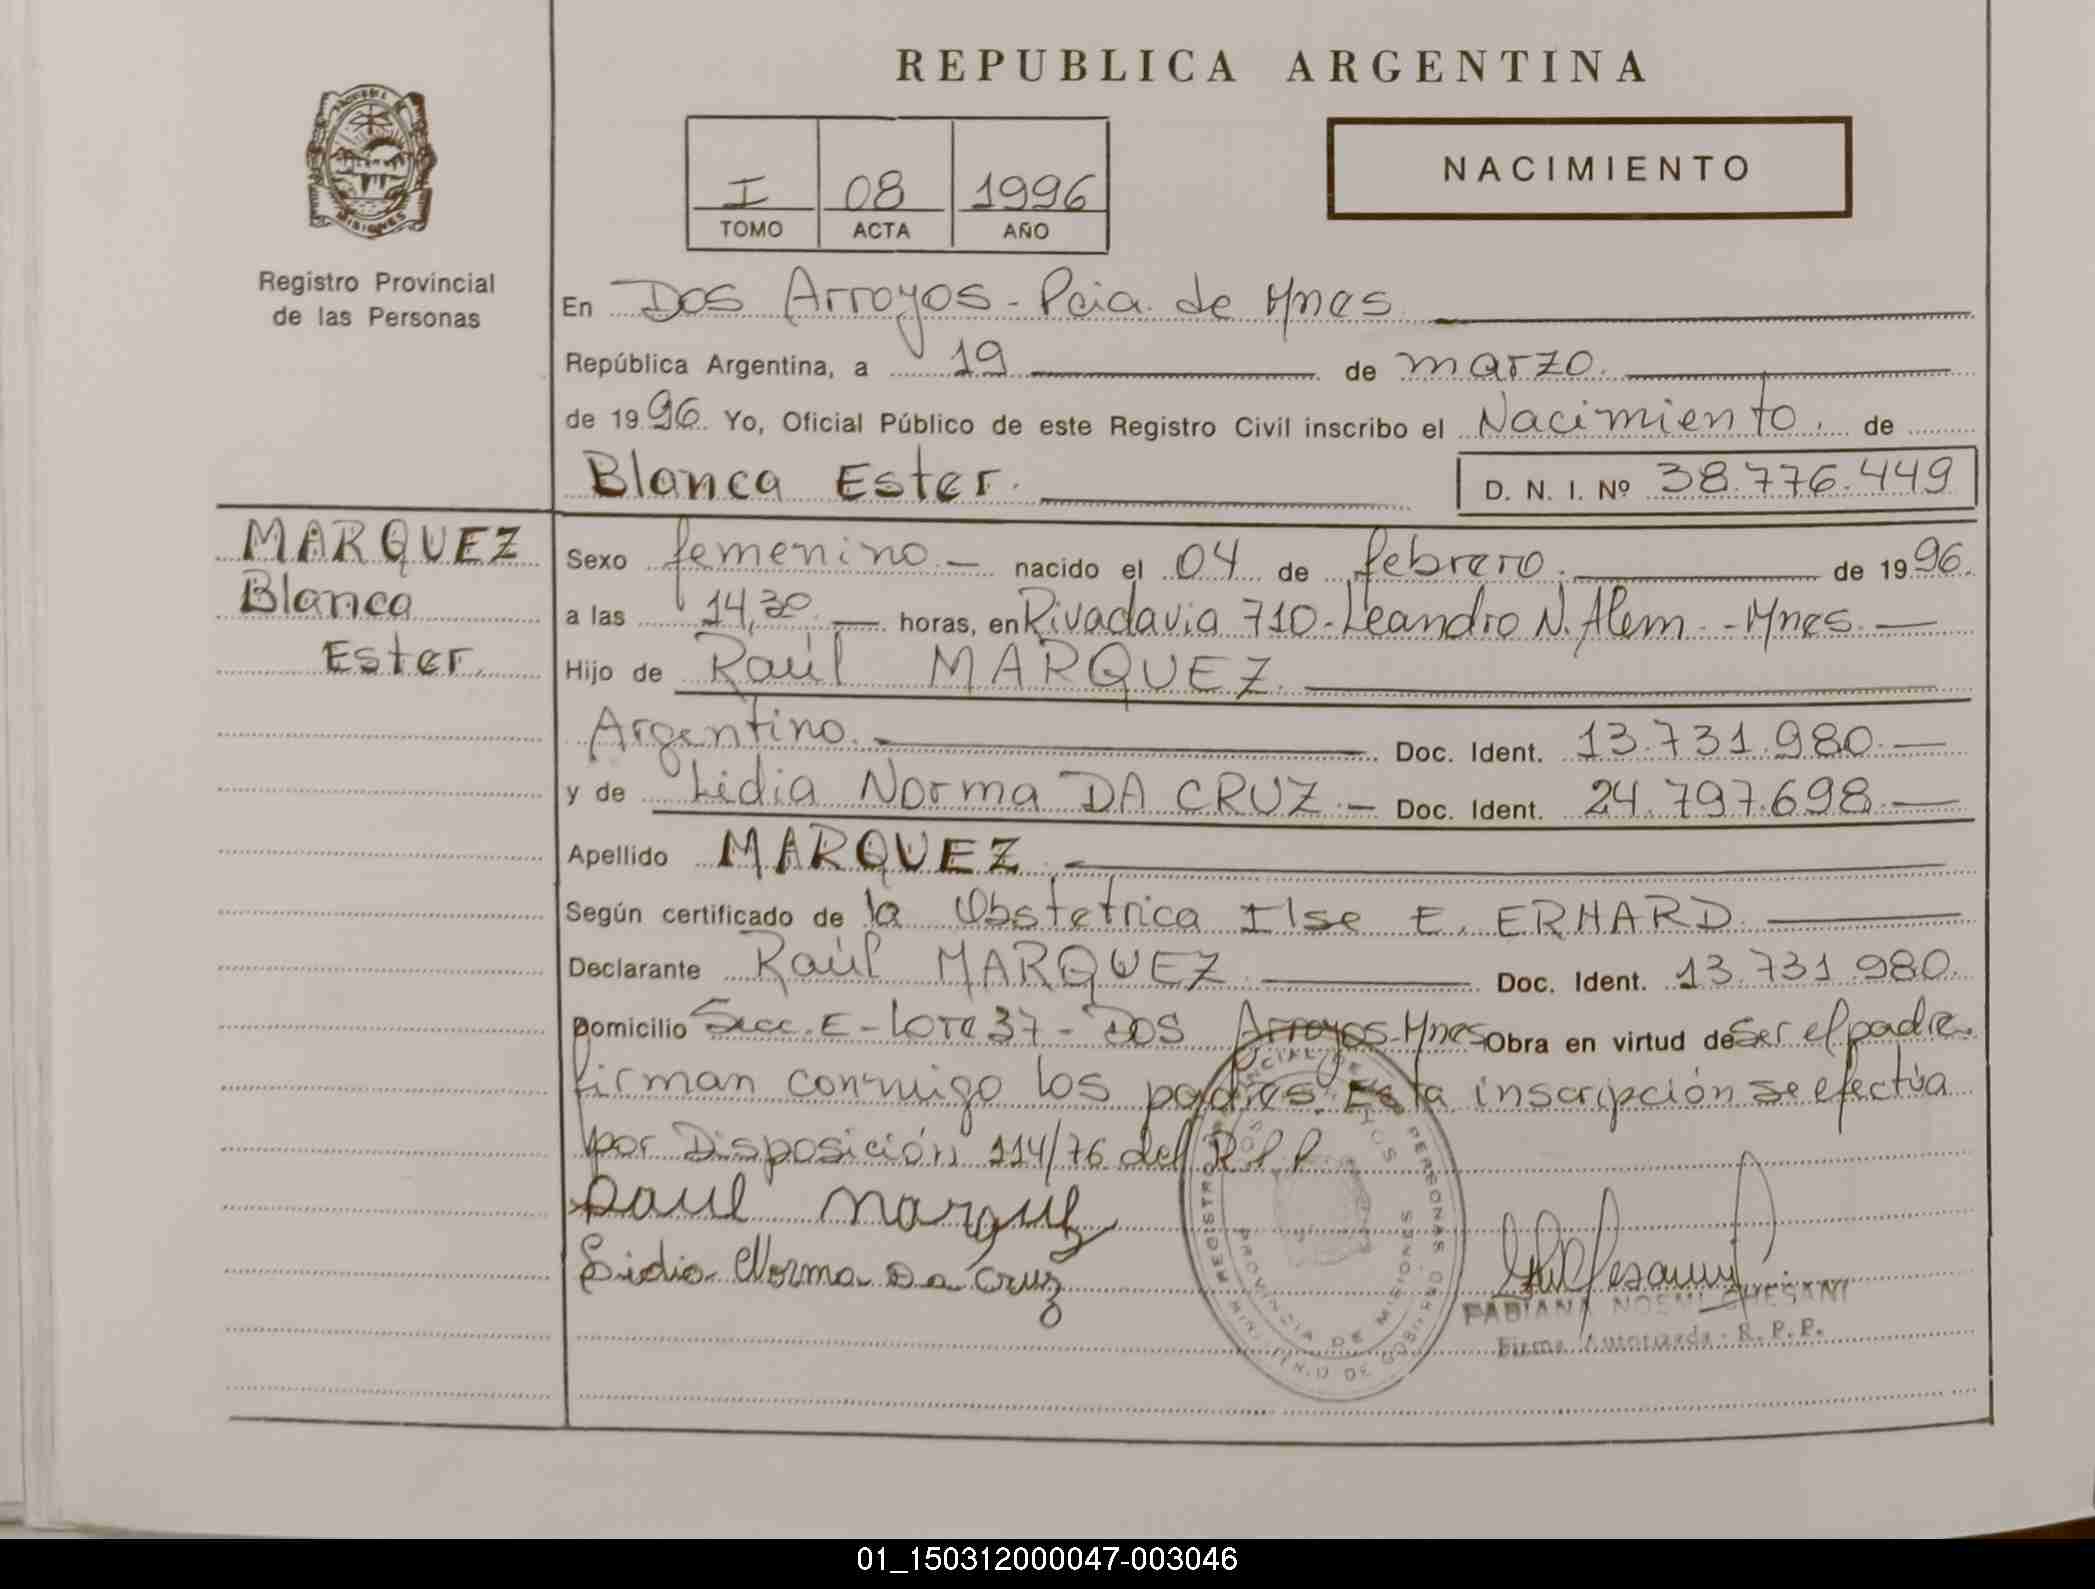 REPUBLICA ARGENTINA
NACIMIENTO
I 08 1996
TOMO ACTA AÑO
MISIONES
Registro Provincial
de las Personas
En Dos Arroyos - Pcia. de Mnes
República Argentina, a 19 de marzo.
de 1996. Yo, Oficial Público de este Registro Civil inscribo el Nacimiento. de
Blanca Ester.
D. N. I. Nº 38.776.449
MARQUEZ
Blanca
Ester.
Sexo femenino.- nacido el 04 de febrero. de 1996.
a las 14,30 horas, en Rivadavia 710-Leandro N. Alem.-Mnes.
Hijo de Raúl MARQUEZ.
Argentino. Doc. Ident. 13.731.980.
y de Lidia Norma DA CRUZ.- Doc. Ident. 24.797.698.
Apellido MARQUEZ.
Según certificado de la Obstetrica Ilse E. ERHARD.
Declarante Raúl MARQUEZ Doc. Ident. 13.731.980.
Domicilio Secc. E-Lote 37- Dos Arroyos-Mnes Obra en virtud de ser el padre.
firman conmigo los padres. Esta inscripción se efectúa
por Disposición 114/76 del R.P.P.
Raul Marquez
Lidia Norma Da Cruz
PROVINCIA DE MISIONES
FABIANA NOEMI
Firma Autorizada - R. P. P.
01_150312000047-003046